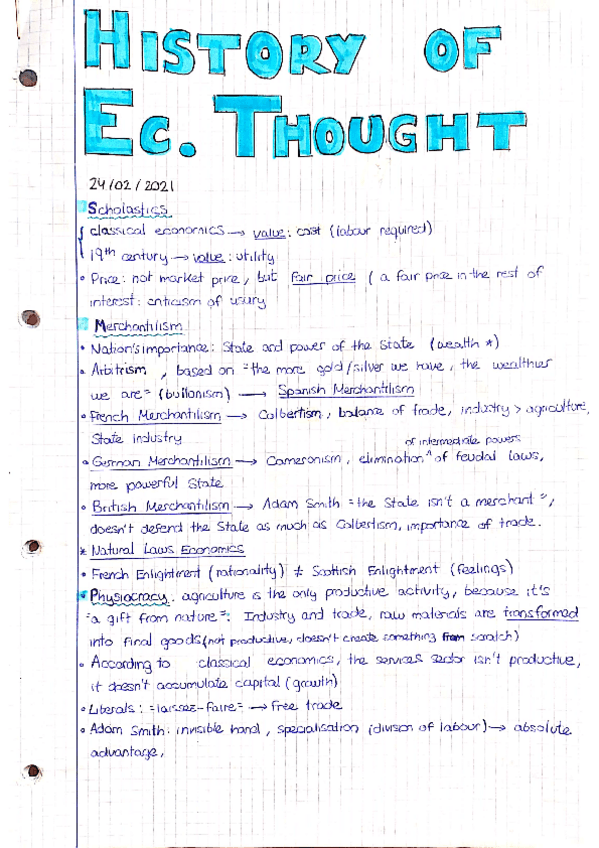 HISTORY OF
EC. THOUGHT
24/02/2021
Scholastics
classical economics → value: cost (labour required)
19th century → value: utility
• Price: not market price, but fair price (a fair price in the rest of
interest: criticism of usury
Merchantilism
• Nation's importance: State and power of the State (wealth *)
• Arbitrism, based on "the more gold/silver we have, the wealthier
we are" (bullonism) → Spanish Merchantilism
• French Merchantilism → Colbertism, balance of trade, industry > agriculture,
State industry
of intermediate powers
• German Merchantilism → Cameronism, elimination ^ of feudal laws,
more powerful State
• British Merchantilism → Adam Smith "the State isn't a merchant",
doesn't defend the State as much as Colbertism, importance of trade.
* Natural Laws Economics
• French Enlightment (rationality) ≠ Scottish Enlightment (feelings)
• Physiocracy: agriculture is the only productive activity, because it's
"a gift from nature". Industry and trade, raw materials are transformed
into final goods (not productive, doesn't create something from scratch)
• According to classical economics, the services sector isn't productive,
it doesn't accumulate capital (growth)
• Liberals: "laissez-faire" → free trade
• Adam Smith: invisible hand, specialisation (division of labour) → absolute
advantage,